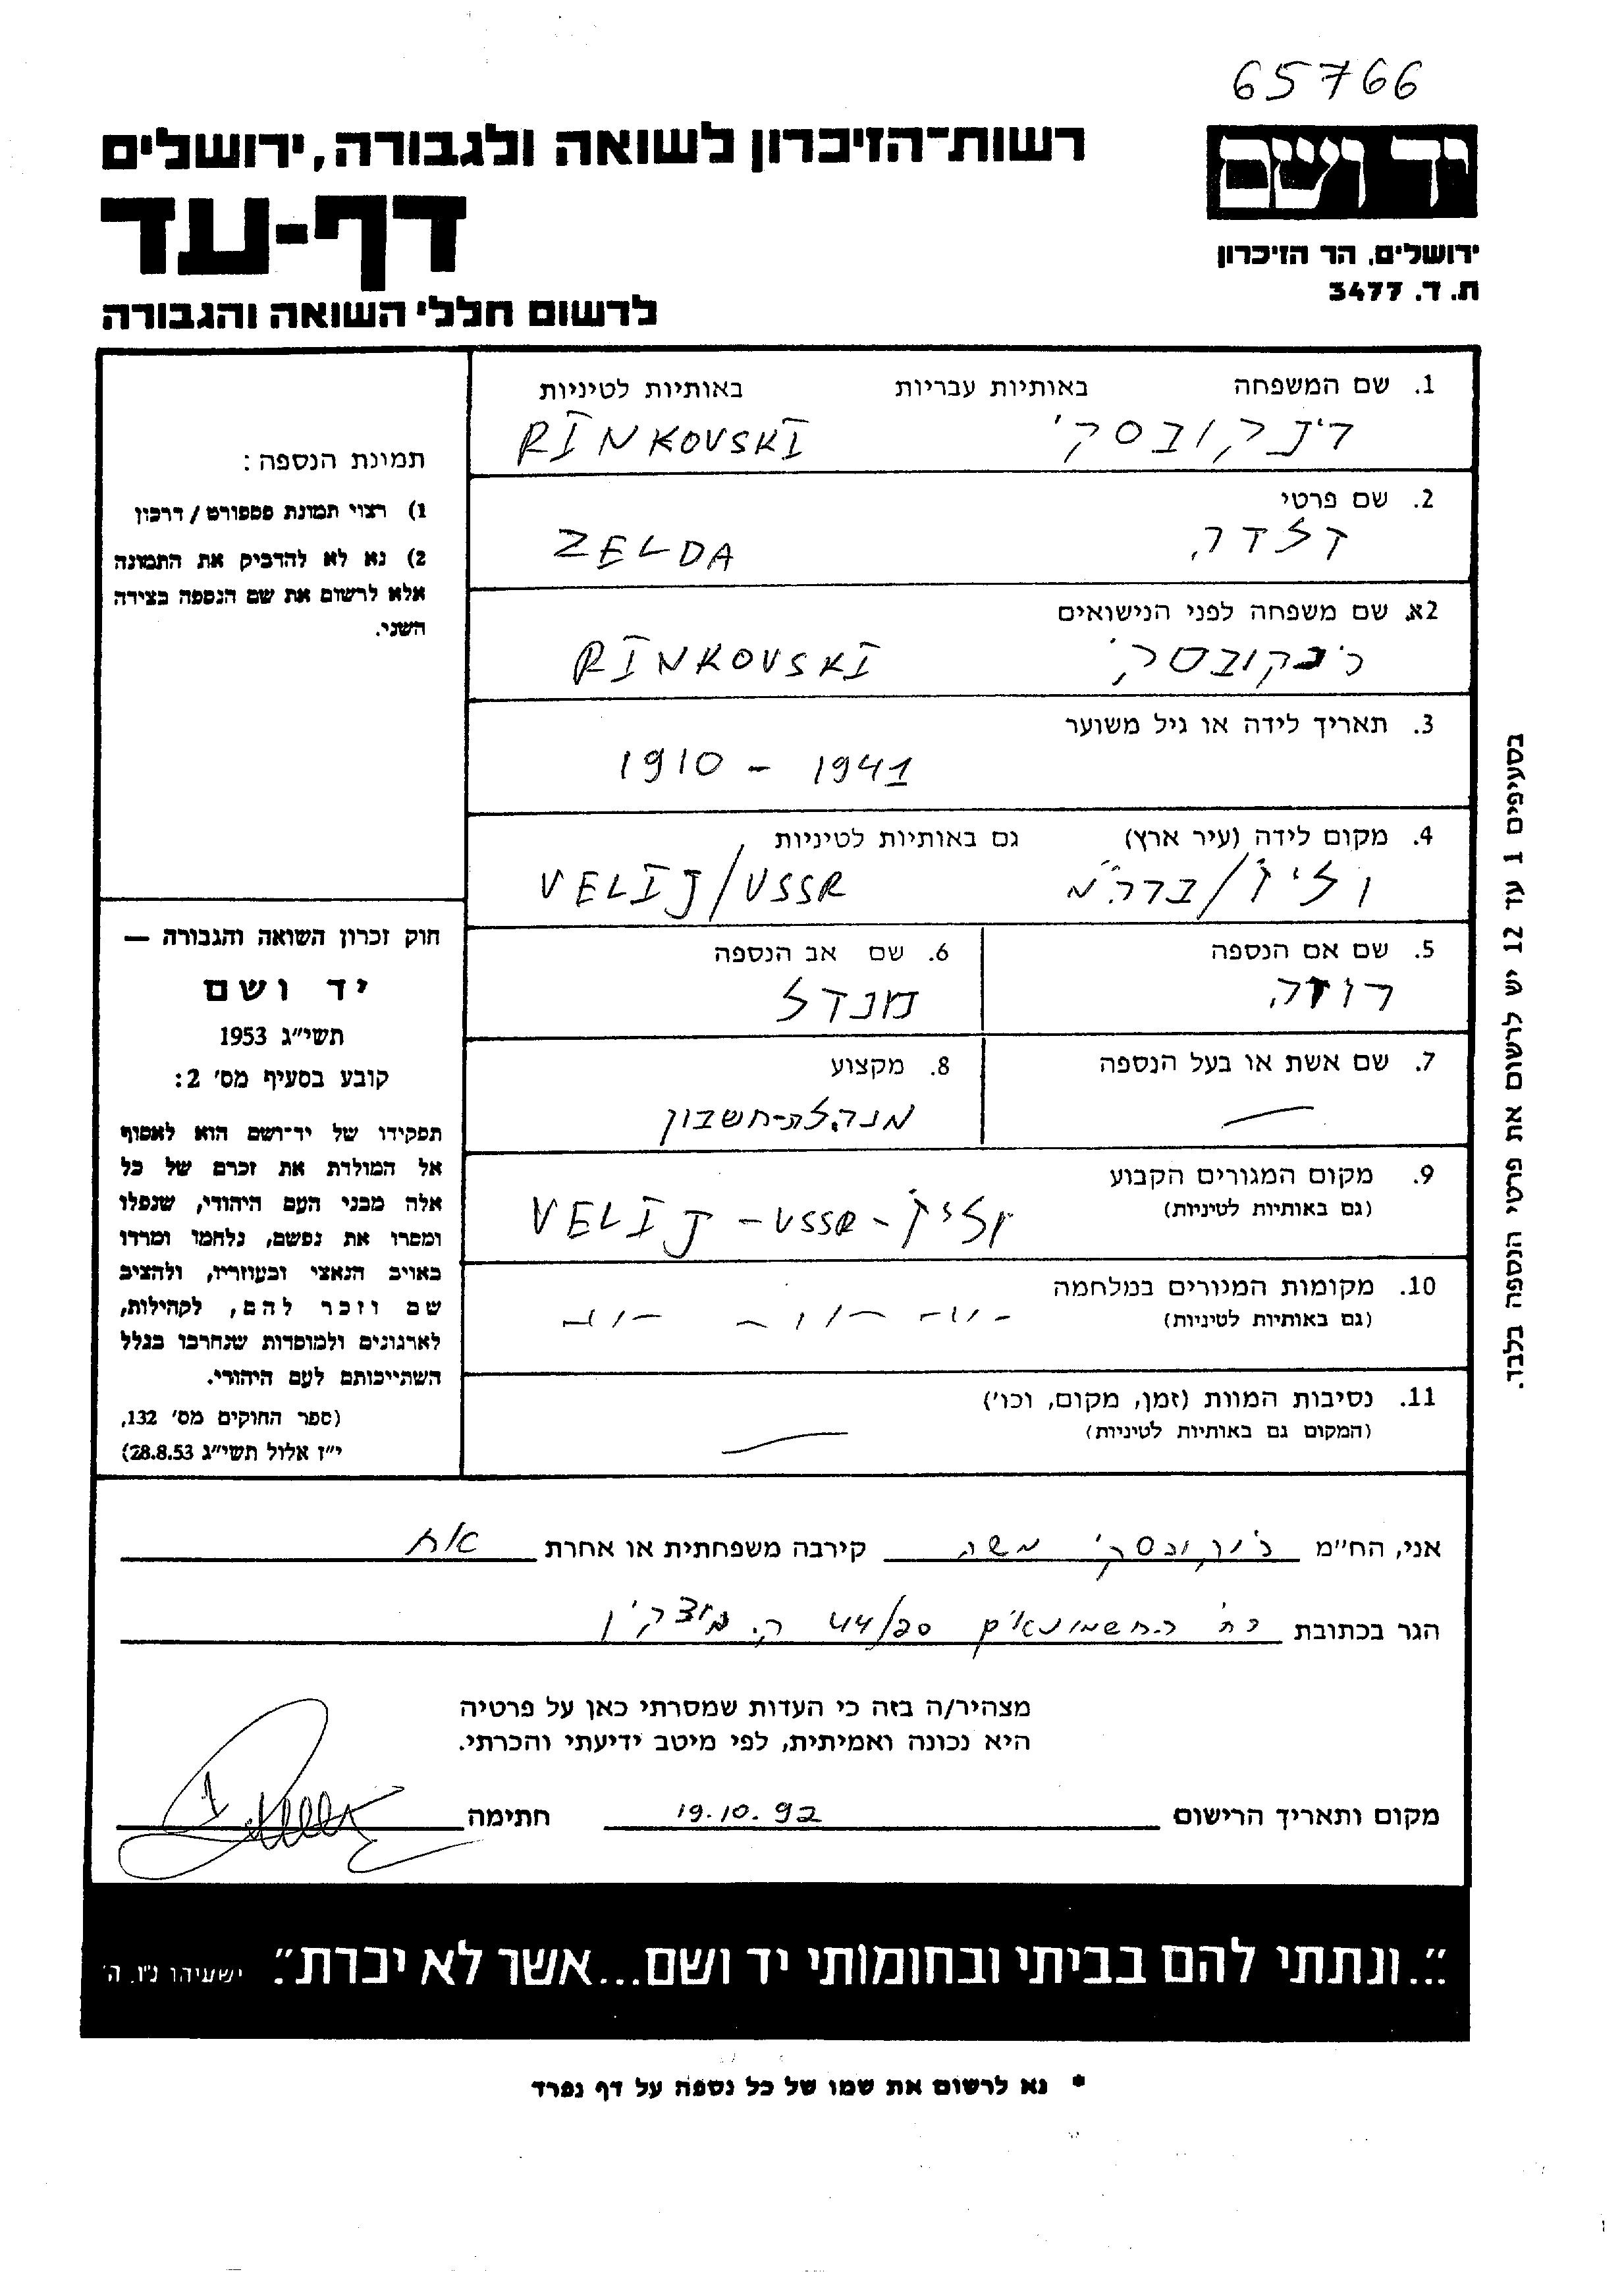 65766
רשות־הזיכרון לשואה ולגבורה, ירושלים
יד ושם
דף-עד
ירושלים, הר הזיכרון
ת. ד. 3477
לרשום חללי השואה והגבורה
1. שם המשפחה באותיות עבריות באותיות לטיניות
רינקובסקי RINKOVSKI
תמונת הנספה:
1) רצוי תמונת פספורט / דרכון
2) נא לא להדביק את התמונה
אלא לרשום את שם הנספה בצידה
השני.
2. שם פרטי
זלדה ZELDA
2א. שם משפחה לפני הנישואים
רינקובסקי RINKOVSKI
3. תאריך לידה או גיל משוער
1910 - 1941
4. מקום לידה (עיר ארץ) גם באותיות לטיניות
וליז/ברה"מ VELIJ/USSR
5. שם אם הנספה 6. שם אב הנספה
מנדל
7. שם אשת או בעל הנספה 8. מקצוע
— מנהלת-חשבון
9. מקום המגורים הקבוע
(גם באותיות לטיניות)
VELIJ - USSR - וליז
10. מקומות המגורים במלחמה
(גם באותיות לטיניות)
11. נסיבות המוות (זמן, מקום, וכו')
(המקום גם באותיות לטיניות)
—
חוק זכרון השואה והגבורה —
יד ושם
תשי"ג 1953
קובע בסעיף מס' 2:
תפקידו של יד־ושם הוא לאסוף
אל המולדת את זכרם של כל
אלה מבני העם היהודי, שנפלו
ומסרו את נפשם, נלחמו ומרדו
באויב הנאצי ובעוזריו, ולהציב
שם וזכר להם, לקהילות,
לארגונים ולמוסדות שנחרבו בגלל
השתייכותם לעם היהודי.
(ספר החוקים מס' 132,
י"ז אלול תשי"ג 28.8.53)
בסעיפים 1 עד 12 יש לרשום את פרטי הנספה בלבד.
אני, הח"מ רינקובסקי משה קירבה משפחתית או אחרת אח
הגר בכתובת רח' החשמונאים 44/20 ק. מוצקין
מצהיר/ה בזה כי העדות שמסרתי כאן על פרטיה
היא נכונה ואמיתית, לפי מיטב ידיעתי והכרתי.
מקום ותאריך הרישום 19.10.92 חתימה
"...ונתתי להם בביתי ובחומותי יד ושם...אשר לא יכרת". ישעיהו נ"ו, ה'
* נא לרשום את שמו של כל נספה על דף נפרד